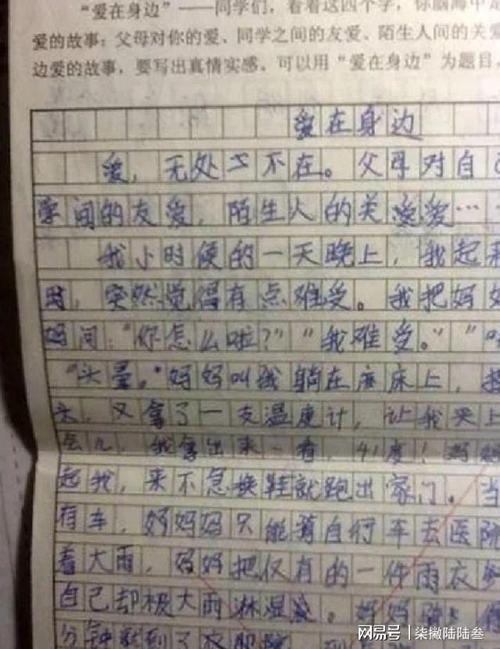 “爱在身边”——同学们，看着这四个字，你脑海中是
爱的故事：父母对你的爱、同学之间的友爱、陌生人间的关爱
边爱的故事，要写出真情实感。可以用“爱在身边”为题目，
爱在身边
爱，无处不在。父母对自己
学间的友爱，陌生人的关爱…
我小时候的一天晚上，我起
时，突然觉得有点难受。我把妈妈
妈问：“你怎么啦？”“我难受。”
“头晕。”妈妈叫我躺在床上，
又拿了一支温度计，让我夹上
会儿，我拿出来一看，41度！妈妈
起我，来不急换鞋就跑出家门。当
有车，妈妈只能骑自行车去医院
着大雨，妈妈把仅有的一件雨衣
自己却被大雨淋湿。妈妈
分钟就到了
网易号 | 柒撇陆陆叁